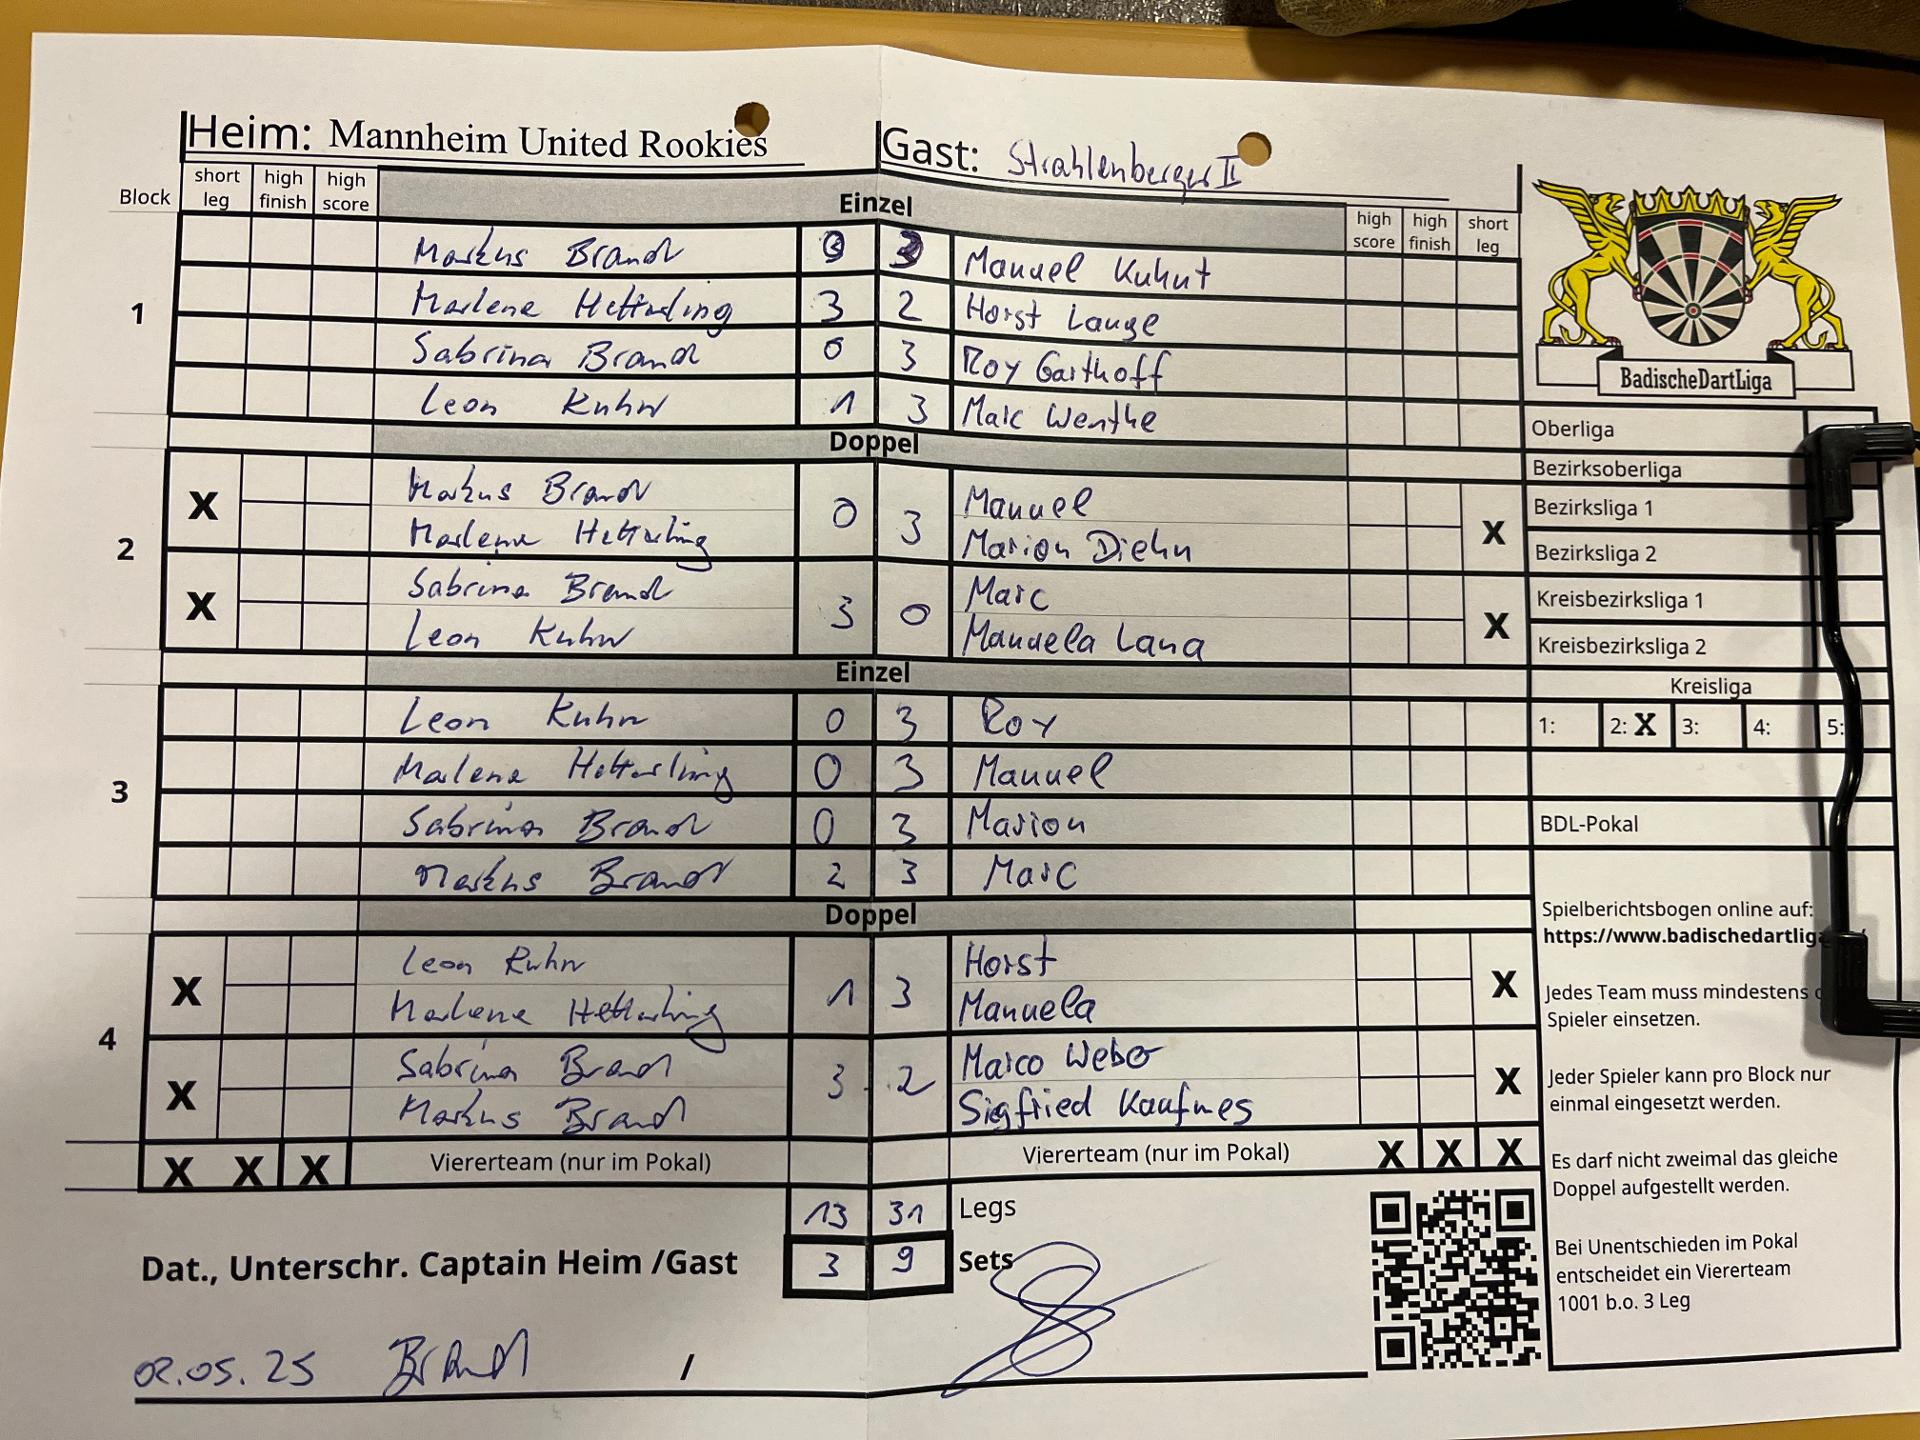 Heim: Mannheim United Rookies Gast: Strahlenberger II
Block short leg high finish high score Einzel high score high finish short leg
1
Markus Brandt 0 3 Manuel Kuhnt
Marlene Hetterling 3 2 Horst Lange
Sabrina Brandt 0 3 Roy Garthoff
Leon Kuhn 1 3 Marc Wenthe
Doppel
2
X Markus Brandt 0 3 Manuel X
Marlene Hetterling Marion Diehn
X Sabrina Brandt 3 0 Marc X
Leon Kuhn Manuela Lana
Einzel
3
Leon Kuhn 0 3 Roy
Marlene Hetterling 0 3 Manuel
Sabrina Brandt 0 3 Marion
Markus Brandt 2 3 Marc
Doppel
4
X Leon Kuhn 1 3 Horst X
Marlene Hetterling Manuela
X Sabrina Brandt 3 2 Marco Weber X
Markus Brandt Sigfried Kaufmes
X X X Viererteam (nur im Pokal) Viererteam (nur im Pokal) X X X
13 31 Legs
Dat., Unterschr. Captain Heim /Gast 3 9 Sets
02.05.25 Brandt /
BadischeDartLiga
Oberliga
Bezirksoberliga
Bezirksliga 1
Bezirksliga 2
Kreisbezirksliga 1
Kreisbezirksliga 2
Kreisliga
1: 2: X 3: 4: 5:
BDL-Pokal
Spielberichtsbogen online auf:
https://www.badischedartliga
Jedes Team muss mindestens
Spieler einsetzen.
Jeder Spieler kann pro Block nur
einmal eingesetzt werden.
Es darf nicht zweimal das gleiche
Doppel aufgestellt werden.
Bei Unentschieden im Pokal
entscheidet ein Viererteam
1001 b.o. 3 Leg